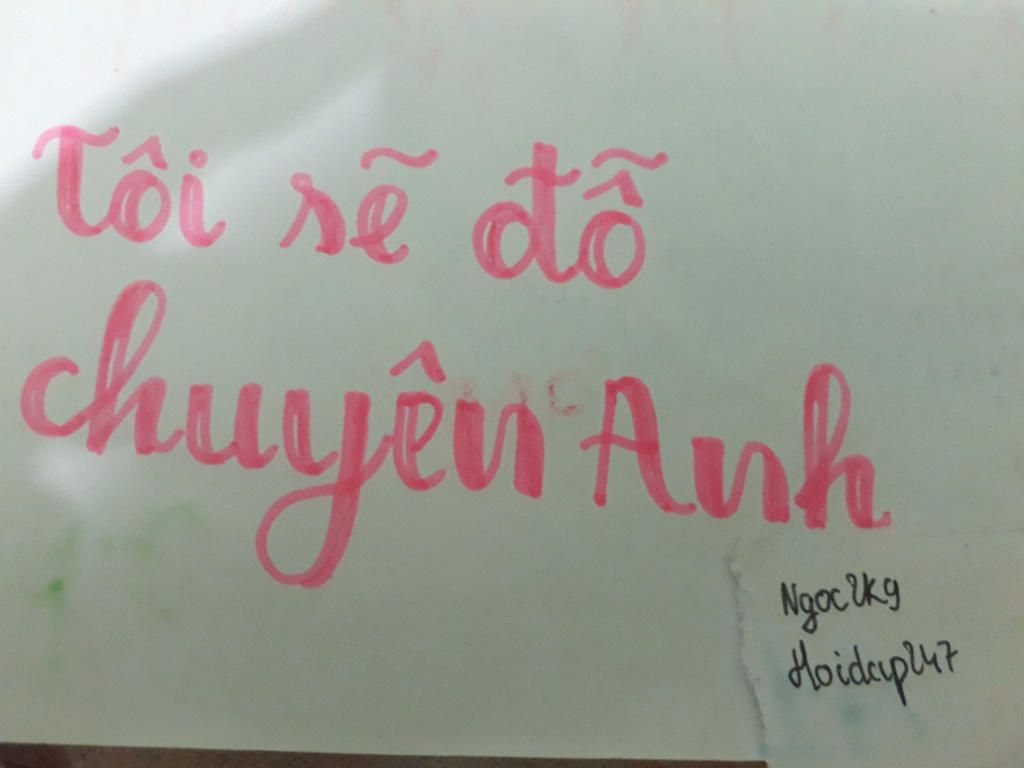 Tôi sẽ đỗ
chuyên Anh
Ngoc2k9
Hoidap247